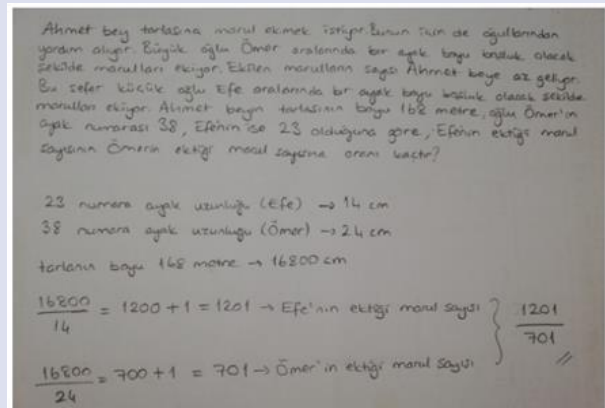 Ahmet bey tarlasına marul ekmek istiyor. Bunun için de oğullarından
yardım alıyor. Büyük oğlu Ömer aralarında bir ayak boyu boşluk olacak
şekilde marulları ekiyor. Ekilen marulların sayısı Ahmet beye az geliyor.
Bu sefer küçük oğlu Efe aralarında bir ayak boyu boşluk olacak şekilde
marulları ekiyor. Ahmet beyin tarlasının boyu 168 metre, oğlu Ömer'in
ayak numarası 38, Efe'nin ise 23 olduğuna göre, Efe'nin ektiği marul
sayısının Ömerin ektiği marul sayısına oranı kaçtır?
23 numara ayak uzunluğu (Efe) → 14 cm
38 numara ayak uzunluğu (Ömer) → 24 cm
tarlanın boyu 168 metre → 16800 cm
16800/14 = 1200 + 1 = 1201 → Efe'nin ektiği marul sayısı
16800/24 = 700 + 1 = 701 → Ömer'in ektiği marul sayısı
1201/701 //